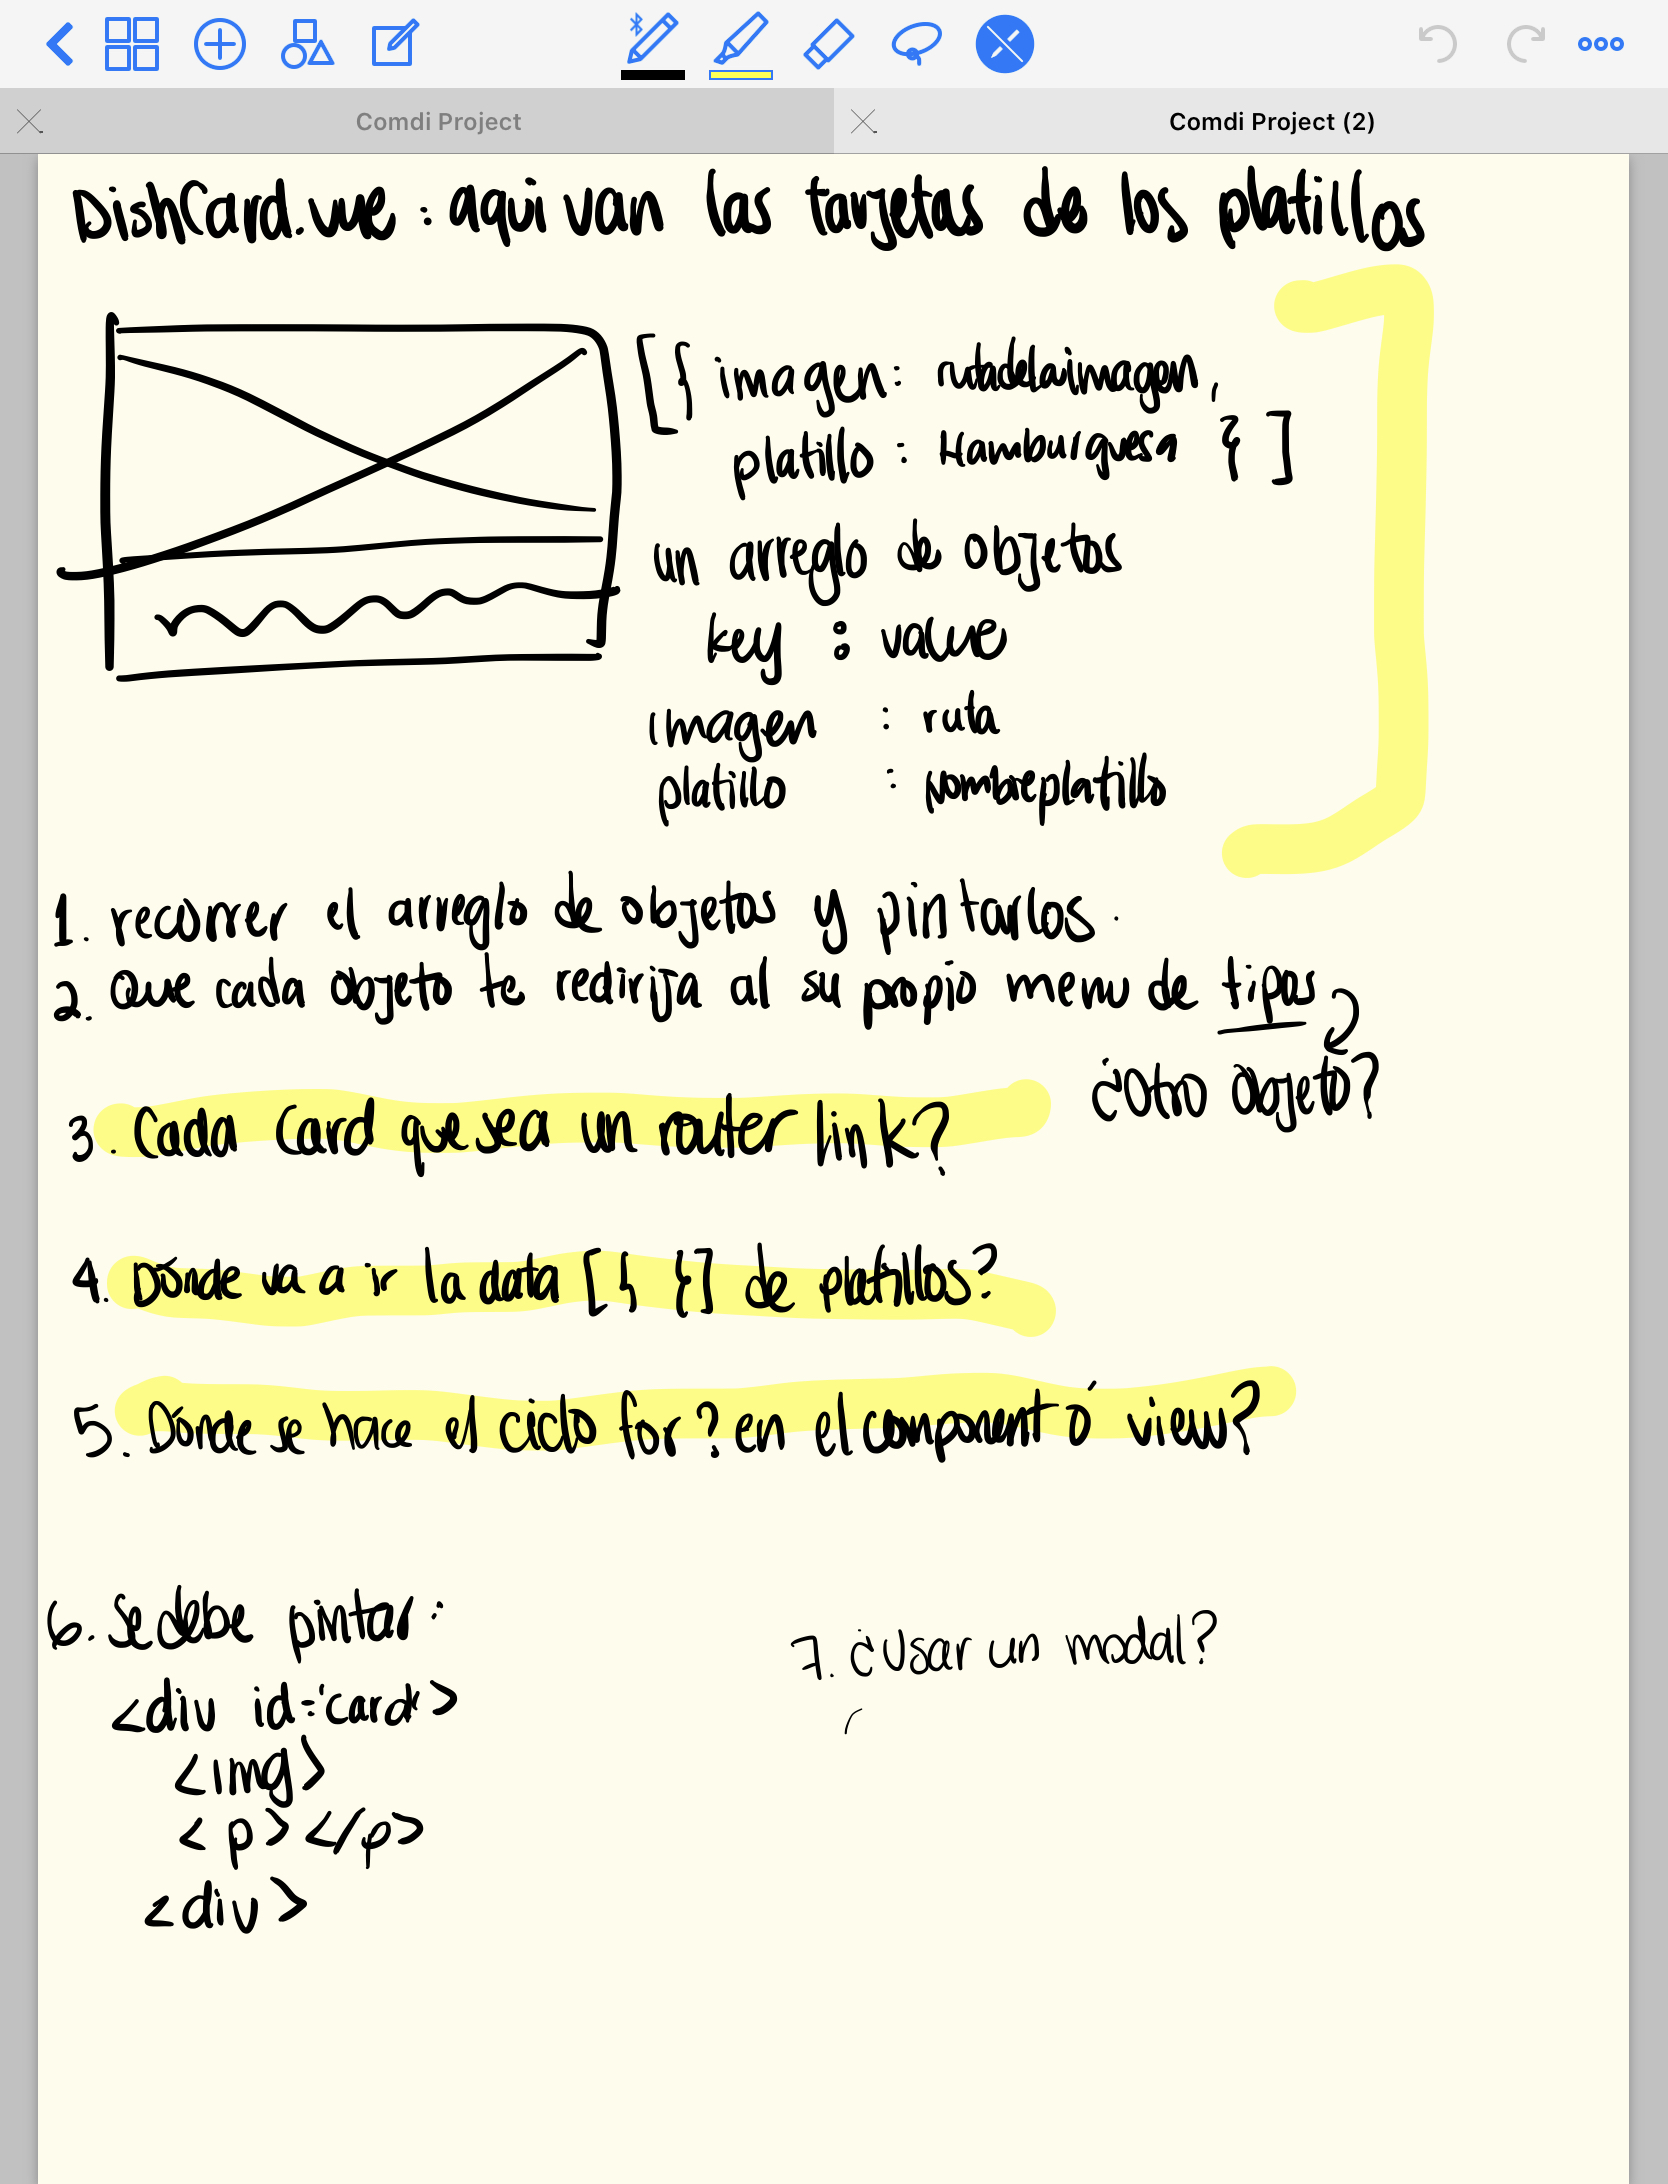 Comdi Project
Comdi Project (2)
DishCard.vue : aqui van las tarjetas de los platillos
[{ imagen: rutadelaimagen,
platillo : Hamburguesa } ]
un arreglo de objetos
key : value
imagen : ruta
platillo : nombreplatillo
1. recorrer el arreglo de objetos y pintarlos.
2. Que cada objeto te redirija al su propio menu de tipos
¿Otro objeto?
3. Cada Card que sea un router link?
4. Dónde va a ir la data [{ }] de platillos?
5. Dónde se hace el ciclo for? en el component ó view?
6. Se debe pintar:
<div id='card'>
<img>
<p></p>
<div>
7. ¿Usar un modal?